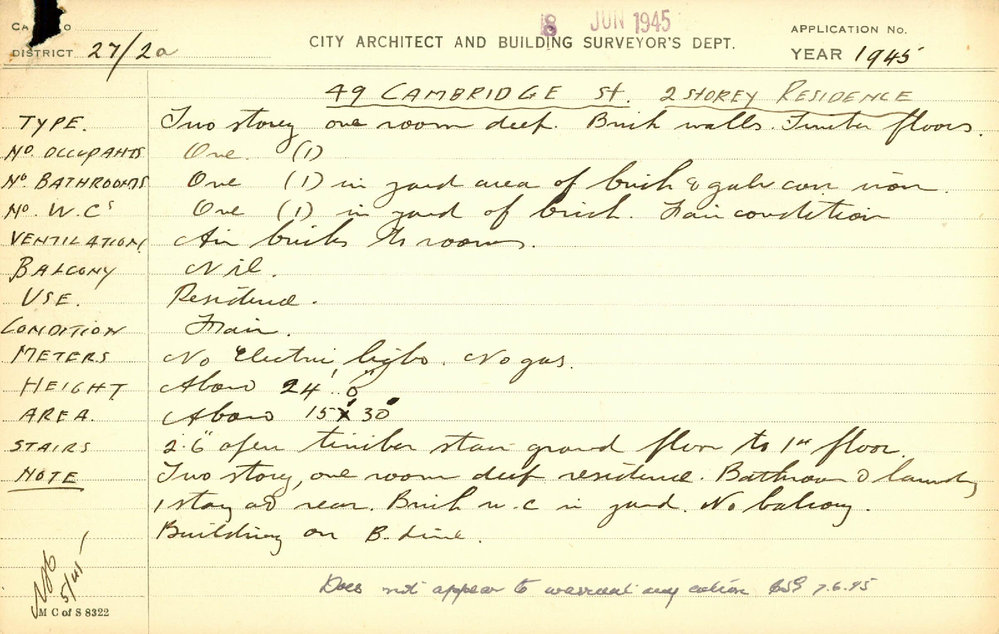 8 JUN 1945
CA O
DISTRICT 27/2a
CITY ARCHITECT AND BUILDING SURVEYOR'S DEPT.
APPLICATION No.
YEAR 1945
49 CAMBRIDGE St. 2 STOREY RESIDENCE
TYPE. Two storey one room deep. Brick walls. Timber floors.
No. OCCUPANTS One. (1)
No. BATHROOMS One (1) in yard area of brick & galv corr iron.
No. W.Cs One (1) in yard of brick. Fair condition
VENTILATION Air bricks to rooms.
BALCONY Nil.
USE. Residence.
CONDITION Fair.
METERS No Electric light. No gas.
HEIGHT About 24' 0"
AREA. About 15' x 30'
STAIRS 2'.6" open timber stair ground floor to 1st floor.
NOTE Two story, one room deep residence. Bathroom & laundry
1 story at rear. Brick w.c in yard. No balcony.
Building on B. Line.
5/45
Does not appear to warrant any action 7.6.45
M C of S 8322